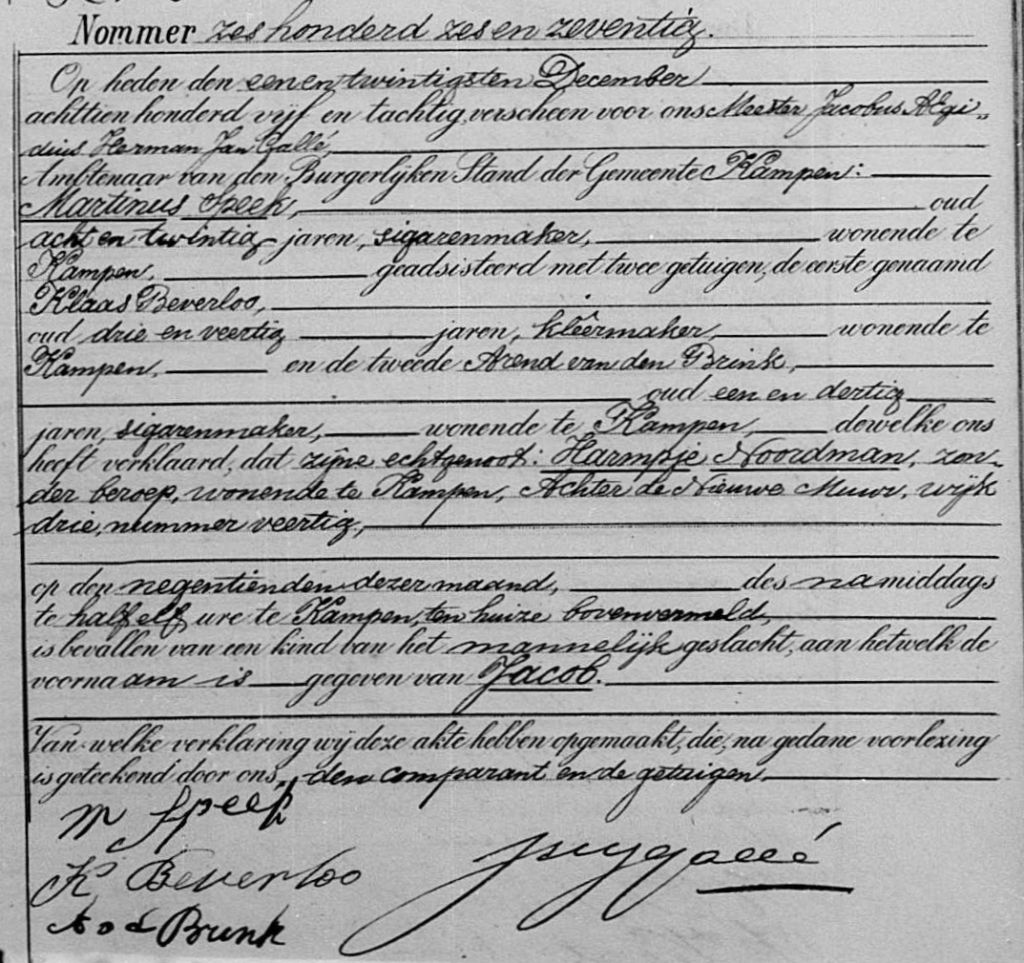 Nommer zes honderd zes en zeventig.
Op heden den een en twintigsten December
achttien honderd vijf en tachtig, verscheen voor ons Meester Jacobus Aegi„
dius Herman Jan Gallé,
Ambtenaar van den Burgerlijken Stand der Gemeente Kampen:
Martinus Speek, oud
acht en twintig jaren, sigarenmaker, wonende te
Kampen, geadsisteerd met twee getuigen, de eerste genaamd
Klaas Beverloo,
oud drie en veertig jaren, kleêrmaker, wonende te
Kampen, en de tweede Arend van den Brink,
oud een en dertig
jaren, sigarenmaker, wonende te Kampen, dewelke ons
heeft verklaard, dat zijne echtgenoot: Harmpje Noordman, zon-
der beroep, wonende te Kampen, Achter de Nieuwe Muur, wijk
drie, nummer veertig,
op den negentienden dezer maand, des namiddags
te half elf ure te Kampen, ten huize bovenvermeld,
is bevallen van een kind van het mannelijk geslacht, aan hetwelk de
voornaam is gegeven van Jacob.
Van welke verklaring wij deze akte hebben opgemaakt, die, na gedane voorlezing
is geteekend door ons, den comparant en de getuigen.
M Speek
K Beverloo
A v d Brink